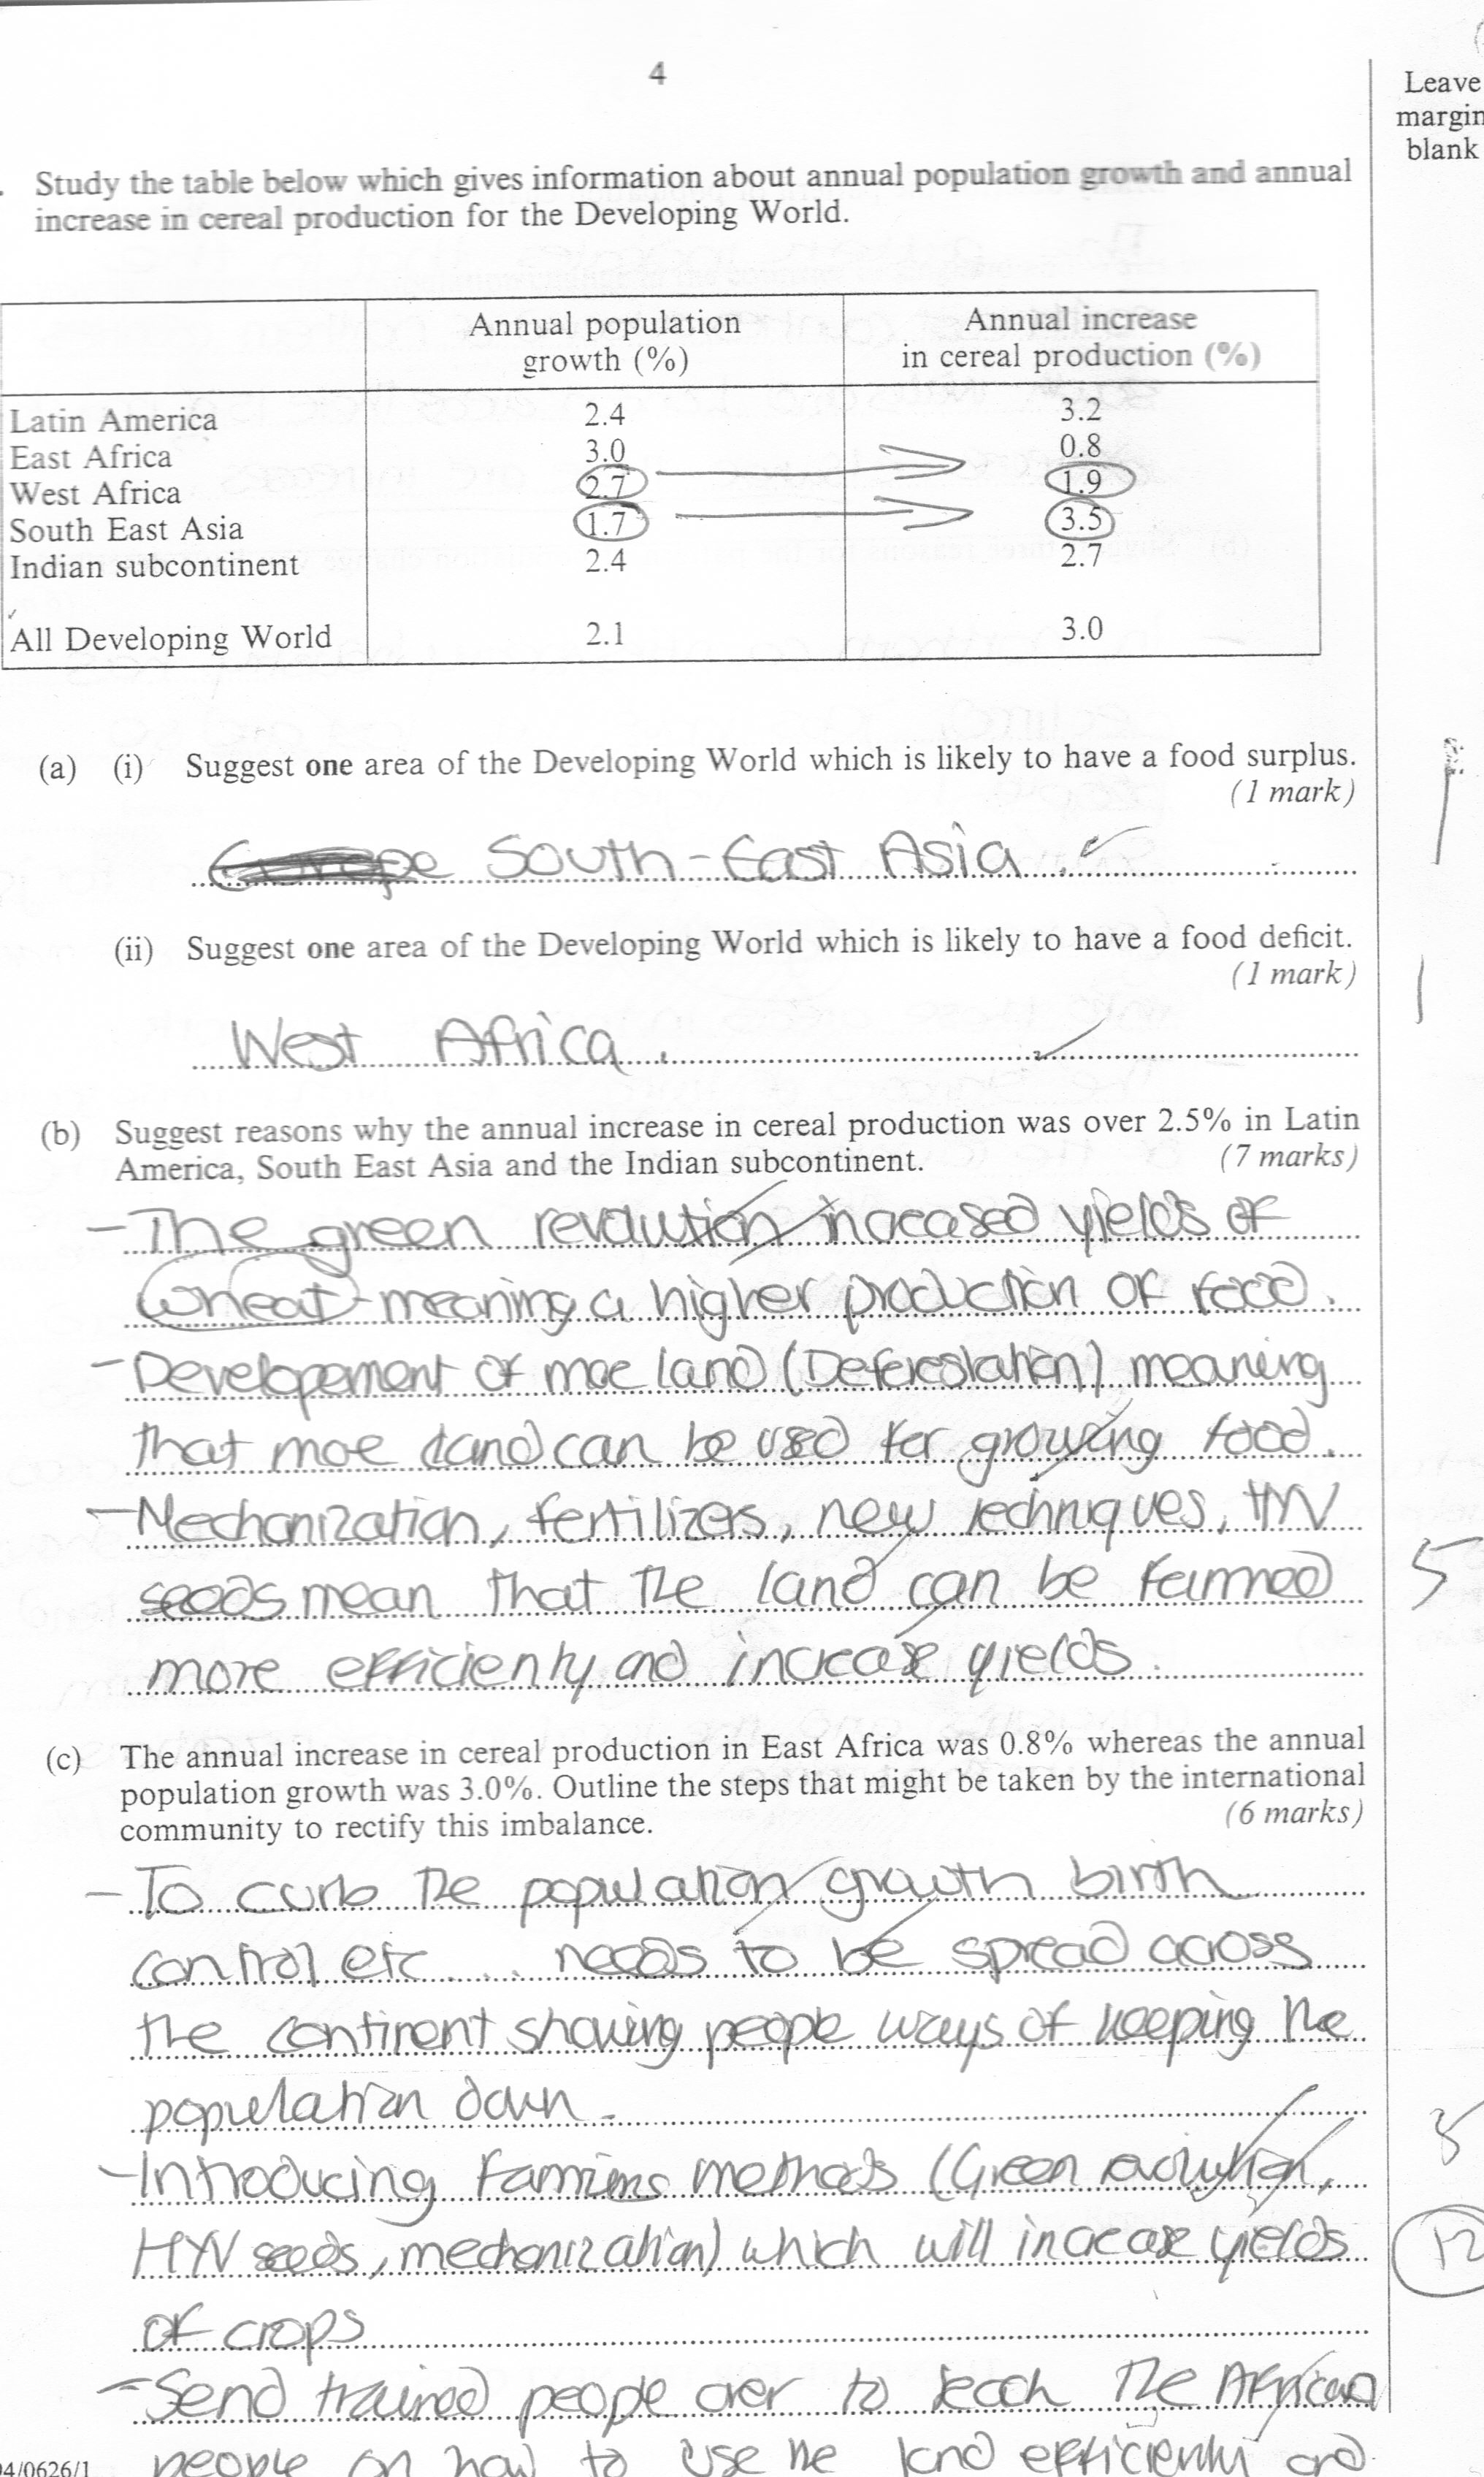 4
Leave
margin
blank
. Study the table below which gives information about annual population growth and annual
increase in cereal production for the Developing World.
Annual population growth (%) Annual increase in cereal production (%)
Latin America 2.4 3.2
East Africa 3.0 0.8
West Africa 2.7 1.9
South East Asia 1.7 3.5
Indian subcontinent 2.4 2.7
All Developing World 2.1 3.0
(a) (i) Suggest one area of the Developing World which is likely to have a food surplus.
(1 mark)
South-East Asia.
1
(ii) Suggest one area of the Developing World which is likely to have a food deficit.
(1 mark)
1
West Africa.
(b) Suggest reasons why the annual increase in cereal production was over 2.5% in Latin
America, South East Asia and the Indian subcontinent. (7 marks)
- The green revolution increased yields of
wheat - meaning a higher production of food.
- Developement of moe land (Deforestation) meaning
that moe land can be used for growing food.
- Mechanization, fertilizers, new techniques, HYV
seeds mean that the land can be farmed 5
more efficiently and increase yields.
(c) The annual increase in cereal production in East Africa was 0.8% whereas the annual
population growth was 3.0%. Outline the steps that might be taken by the international
community to rectify this imbalance. (6 marks)
- To curb the population growth birth
control etc.... needs to be spread across
the continent showing people ways of keeping the
population down.
- Introducing farming methods (Green revolution, 5
HYV seeds, mechanization) which will increase yields 12
of crops
- Send trained people over to teach the African
people on how to use the land efficiently and
94/0626/1